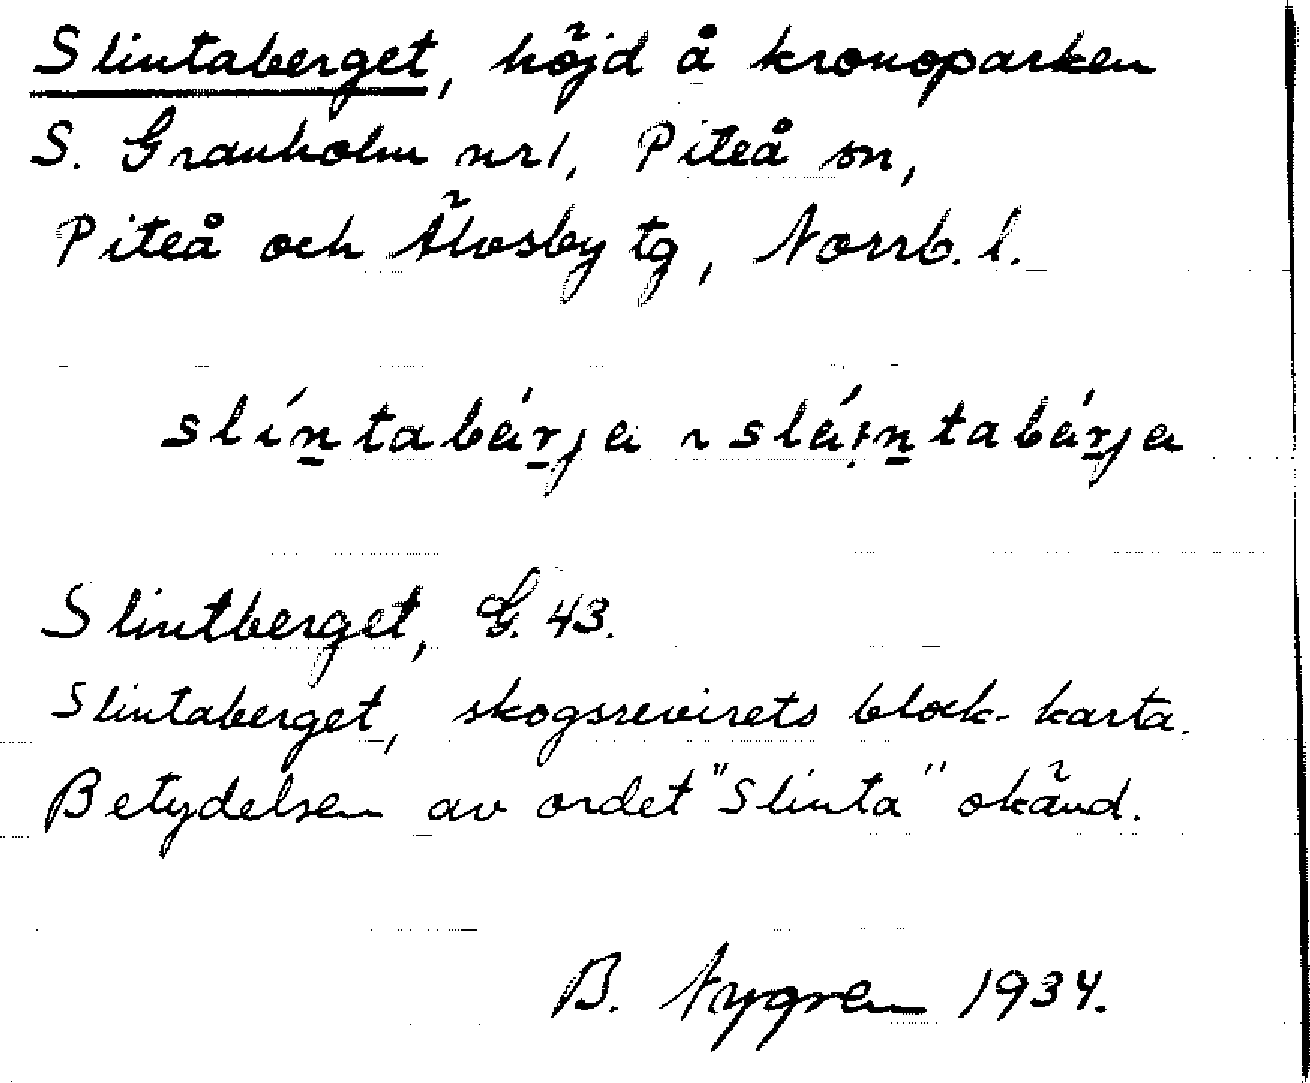 Slintaberget, höjd å kronoparken
S. Granholm nr 1, Piteå sn,
Piteå och Älvsby tg, Norrb. l.
slíntabárja ~ sláintabárja
Slintberget, G. 43.
Slintaberget, skogsrevirets block-karta.
Betydelsen av ordet "Slinta" okänd.
B. Nygren 1934.